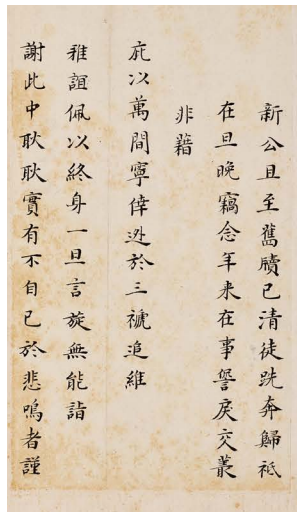 新公且至舊牘已清徒跣奔歸祇
在旦晚竊念年来在事詈戾交叢
非藉
庇以萬間寧倖迯於三褫追維
雅誼佩以終身一旦言旋無能詣
謝此中耿耿實有不自已於悲鳴者謹